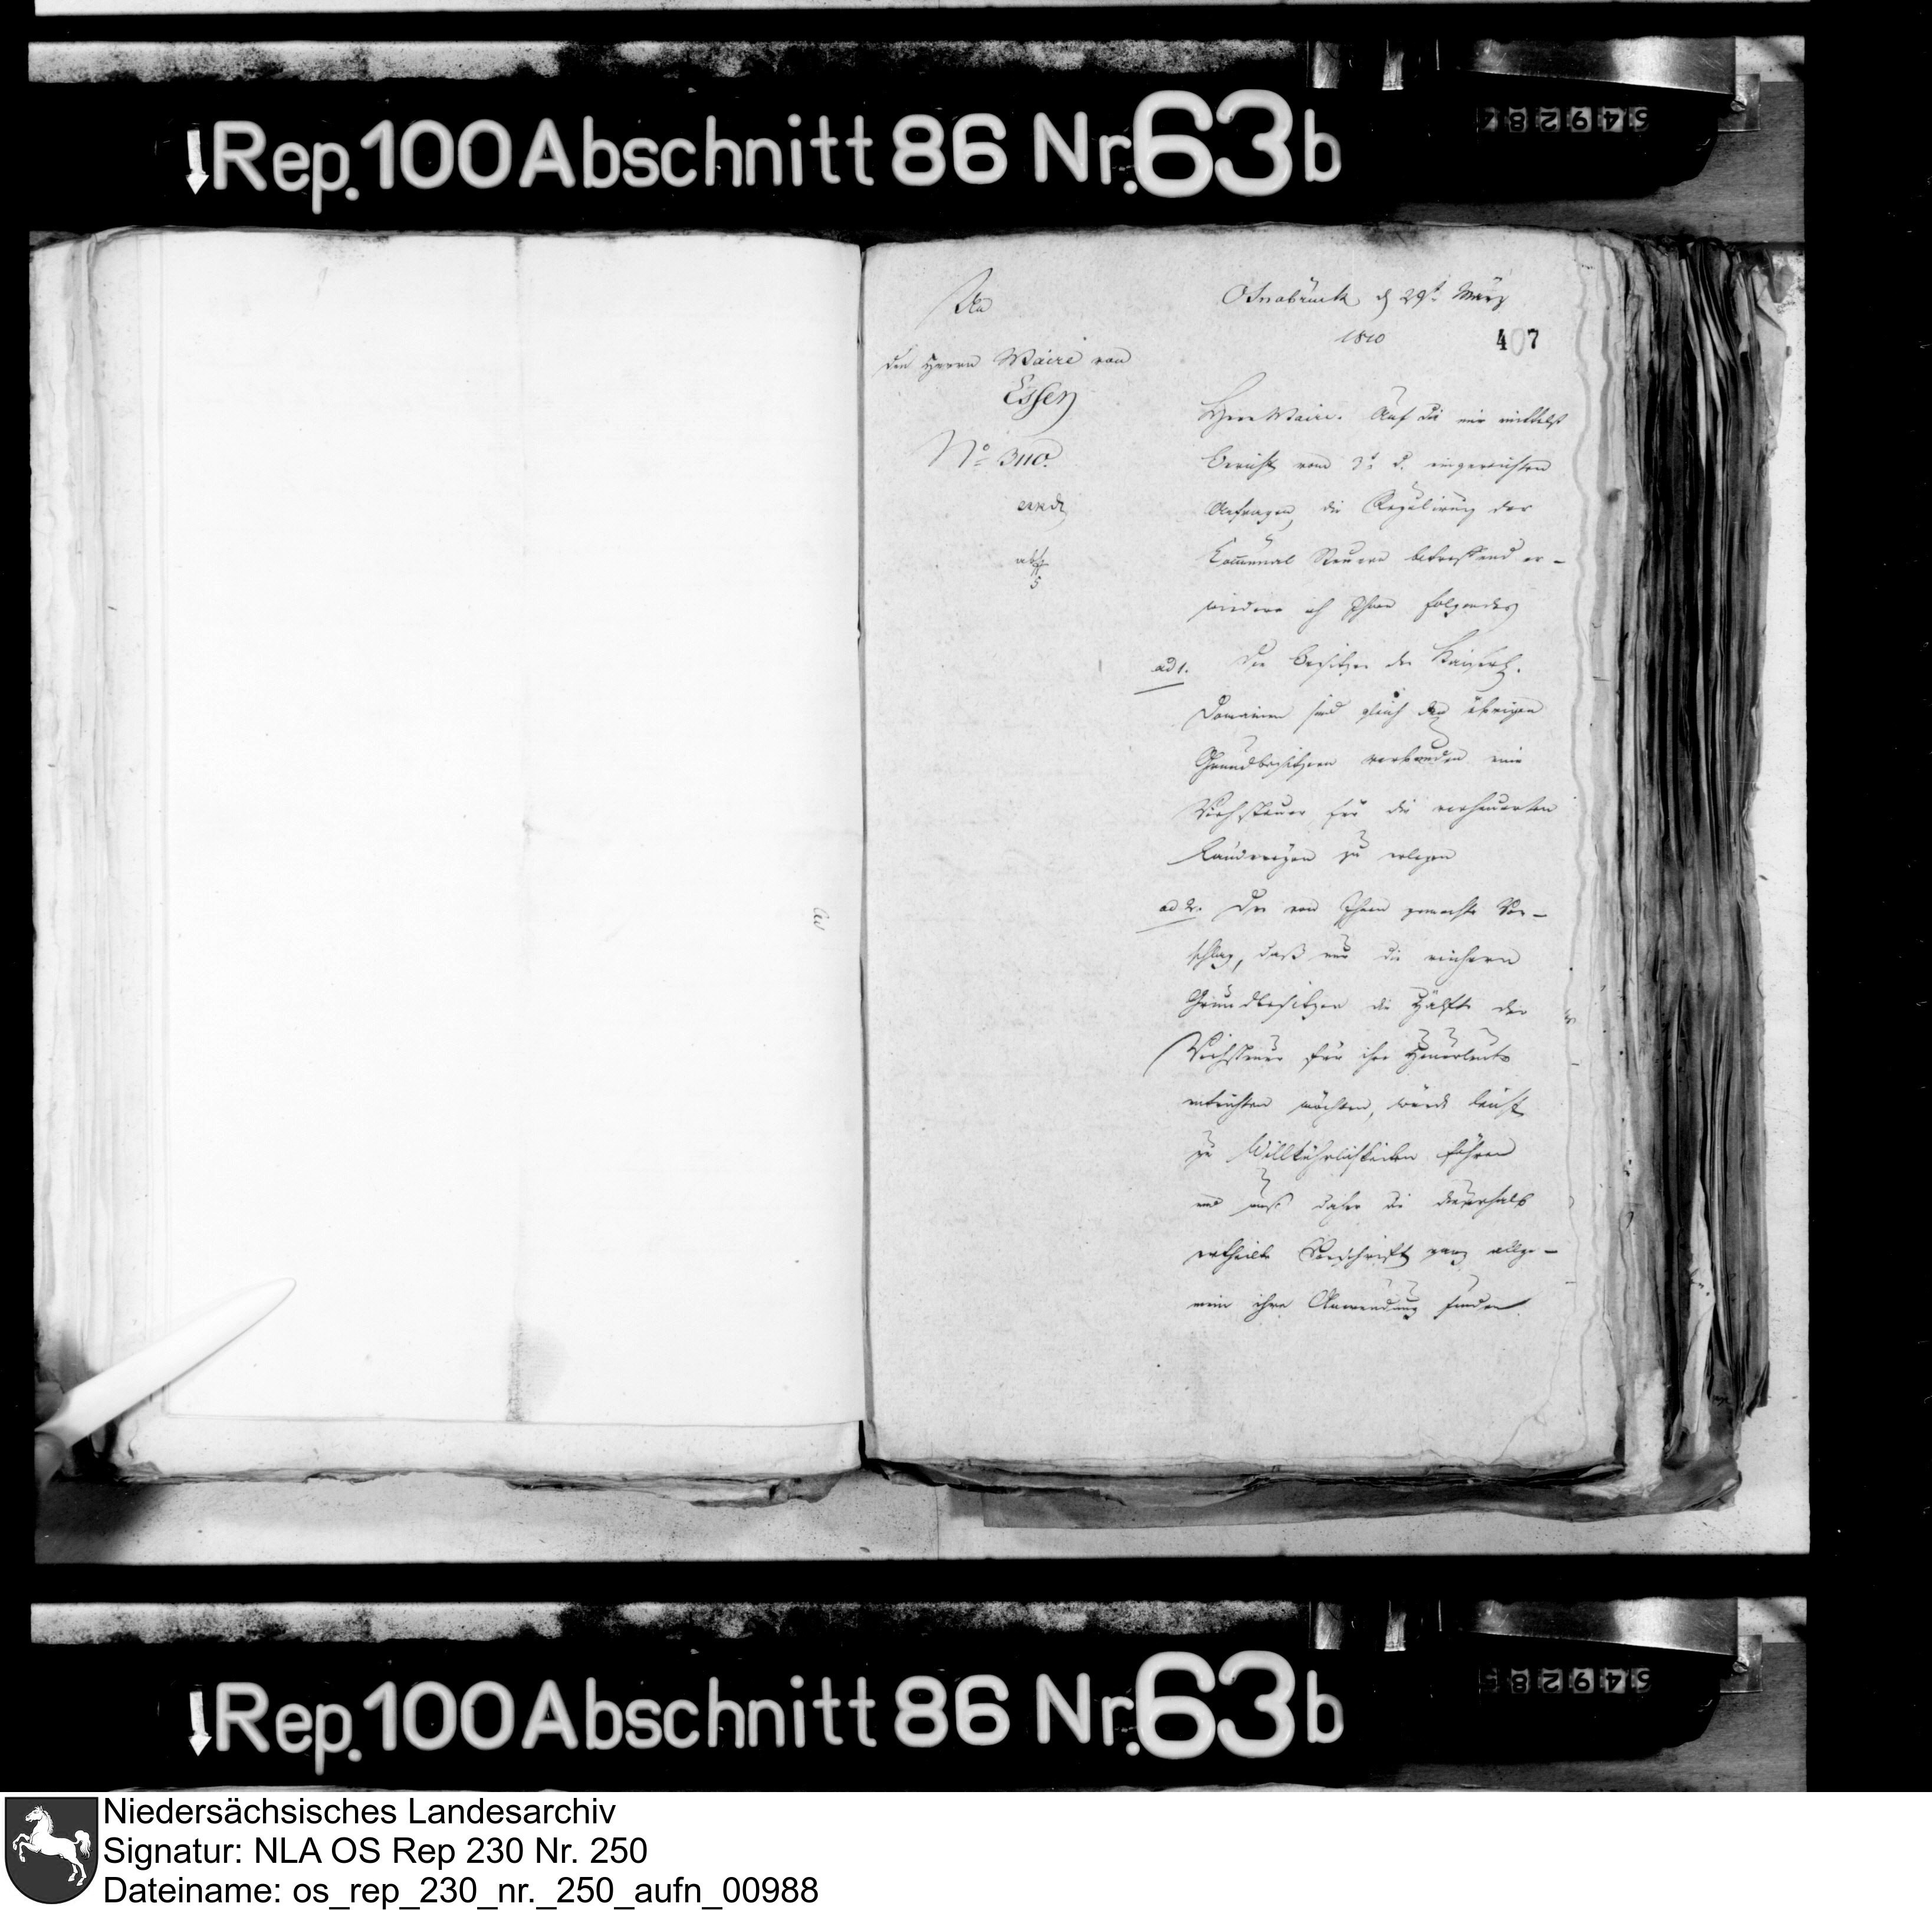 Rep. 100 Abschnitt 86 Nr. 63b
549284
An
den Herrn Maire von
Essen
No 3110.
exped
abg.
5
Osnabrück d 29t. März
1810
407
Herr Maire. Auf die mir mittelst
Bericht vom 3t. d. eingereichten
Anfragen, die Regulirung der
Communal Steuern betreffend er-
wiedere ich Ihnen folgendes
ad 1. Die Besitzer der Kaiserl.
Domainen sind gleich den übrigen
Grundbesitzern verbunden eine
Viehsteuer für die verheuerten
Ländereyen zu erlegen
ad 2. Der von Ihnen gemachte Vor-
schlag, daß nur die reichern
Grundbesitzer die Hälfte der
Viehsteuer für ihre Heuerleute
entrichten möchten, würde leicht
zu Willkührlichkeiten führen
und muß daher die dieserhalb
ertheilte Vorschrift ganz allge-
mein ihre Anwendung finden.
Rep. 100 Abschnitt 86 Nr. 63b
549285
Niedersächsisches Landesarchiv
Signatur: NLA OS Rep 230 Nr. 250
Dateiname: os_rep_230_nr._250_aufn_00988